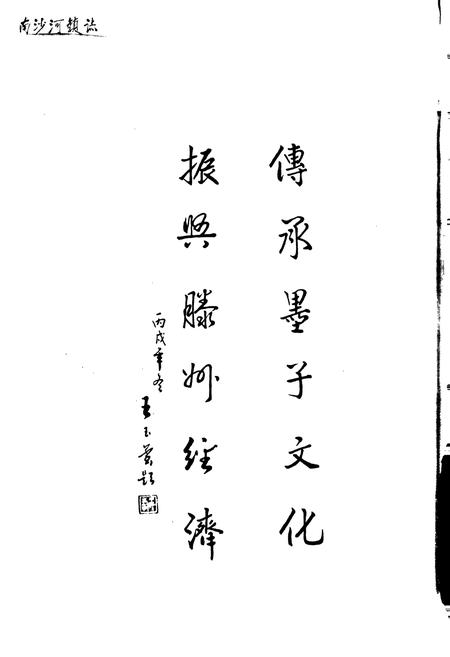 南沙河镇志
傳承墨子文化
振興滕州經濟
丙戌年冬
王玉
題